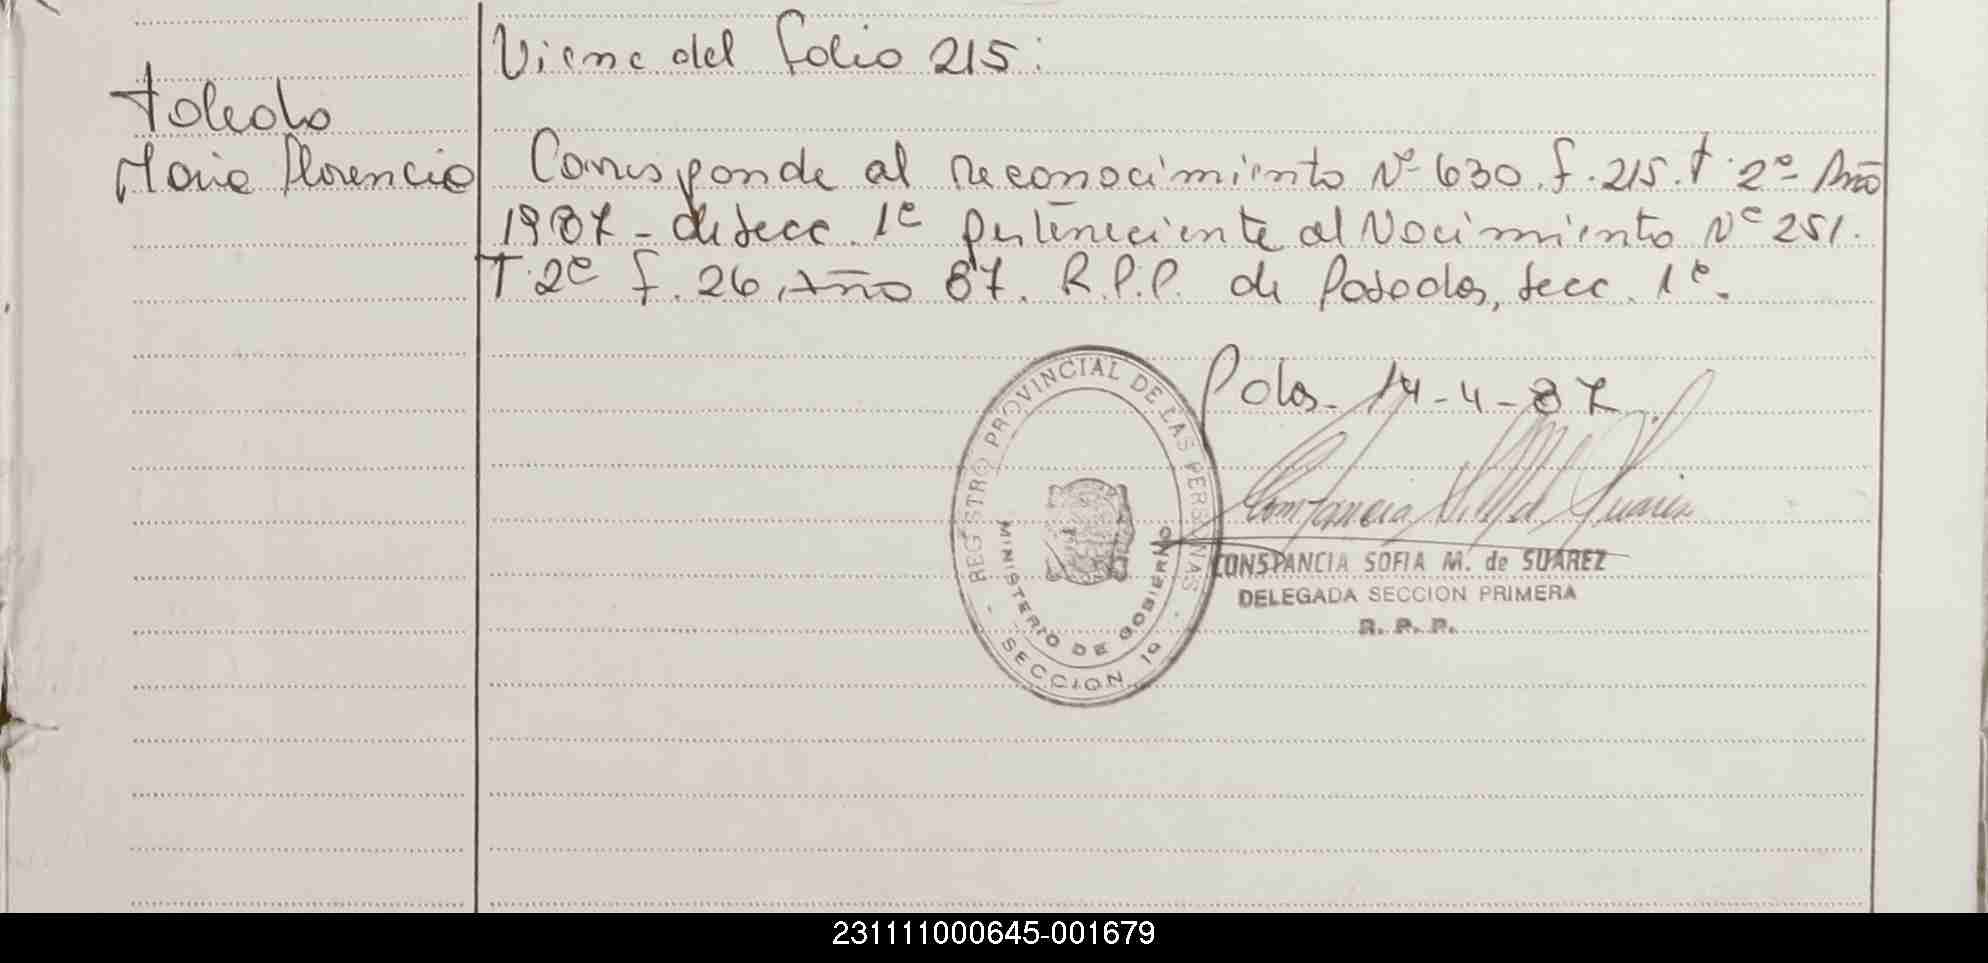 Viene del folio 215:
Toledo
Maria Florencia
Corresponde al reconocimiento Nº 630. f. 215. t. 2º Año
1987 - de secc. 1ª perteneciente al Nacimiento Nº 251.
T. 2º f. 26 Año 87. R.P.P. de Posadas, secc. 1ª.
Pdas. 14-4-87.
REGISTRO PROVINCIAL DE LAS PERSONAS
MINISTERIO DE GOBIERNO
- SECCION 1ª -
CONSTANCIA SOFIA M. de SUAREZ
DELEGADA SECCION PRIMERA
R. P. P.
231111000645-001679